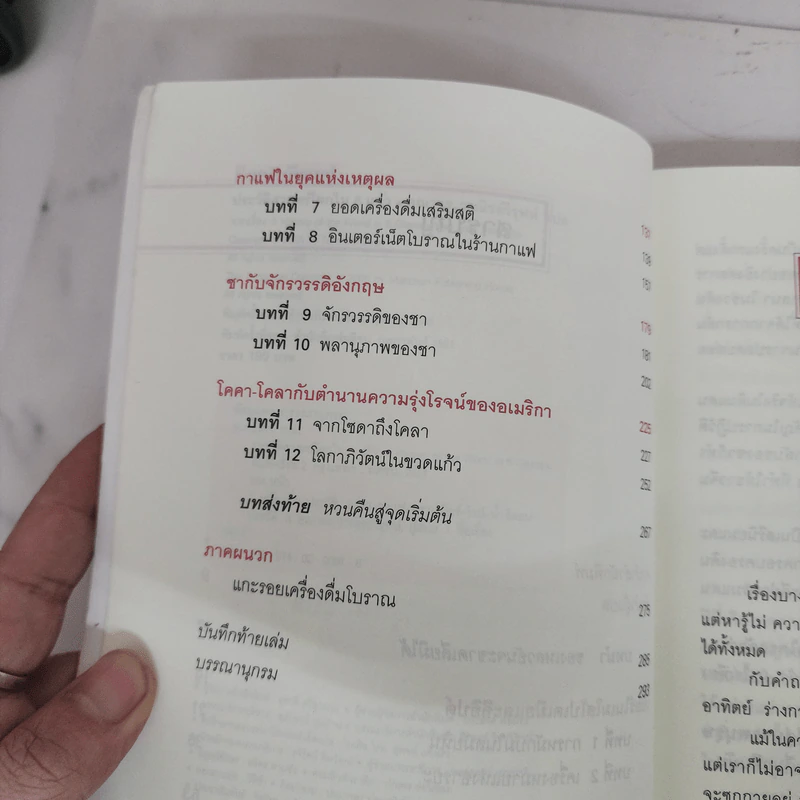 กาแฟในยุคแห่งเหตุผล
บทที่ 7 ยอดเครื่องดื่มเสริมสติ
บทที่ 8 อินเตอร์เน็ตโบราณในร้านกาแฟ 161
ชากับจักรวรรดิอังกฤษ 179
บทที่ 9 จักรวรรดิของชา 181
บทที่ 10 พลานุภาพของชา 202
โคคา-โคลากับตำนานความรุ่งโรจน์ของอเมริกา 225
บทที่ 11 จากโซดาถึงโคลา 227
บทที่ 12 โลกาภิวัตน์ในขวดแก้ว 252
บทส่งท้าย หวนคืนสู่จุดเริ่มต้น 267
ภาคผนวก
แกะรอยเครื่องดื่มโบราณ 275
บันทึกท้ายเล่ม 285
บรรณานุกรม 293
เรื่องบาง
แต่หารู้ไม่ ควา
ได้ทั้งหมด
กับคำถ
อาทิตย์ ร่างกา
แม้ในคว
แต่เราก็ไม่อาจ
จะซุกกายอยู่